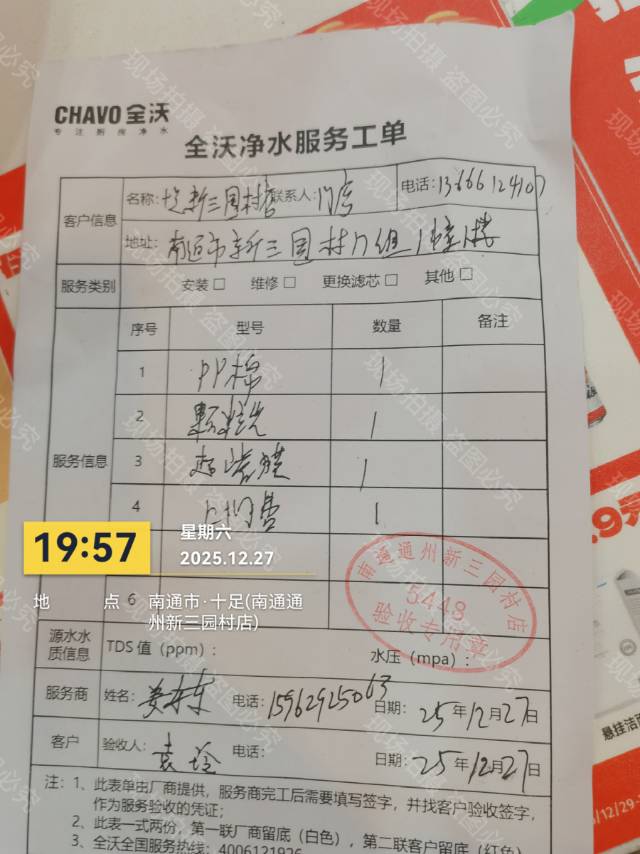 CHAVO 全沃
专注厨房净水
全沃净水服务工单
客户信息
名称: 新三园村店 联系人: 门店 电话: 13666124107
地址: 南通市新三园村17组1幢1楼
服务类别 安装 □ 维修 □ 更换滤芯 □ 其他 □
序号 型号 数量 备注
服务信息
1 PP棉 1
2 颗粒炭 1
3 超滤膜 1
4 上门费 1
6
南通通州新三园村店
5448
验收专用章
19:57
星期六
2025.12.27
地 点 南通市·十足(南通通
州新三园村店)
源水水
质信息
TDS 值（ppm）: 水压（mpa）:
服务商 姓名: 电话: 15962925063 日期: 25年12月27日
客户 验收人: 袁玲 电话: 日期: 25年12月27日
注: 1、此表单由厂商提供，服务商完工后需要填写签字，并找客户验收签字，
作为服务验收的凭证;
2、此表一式两份，第一联厂商留底（白色），第二联客户留底（红色）
3、全沃全国服务热线: 4006121926
悬挂洁
/12/29-
现场拍摄 盗图必究